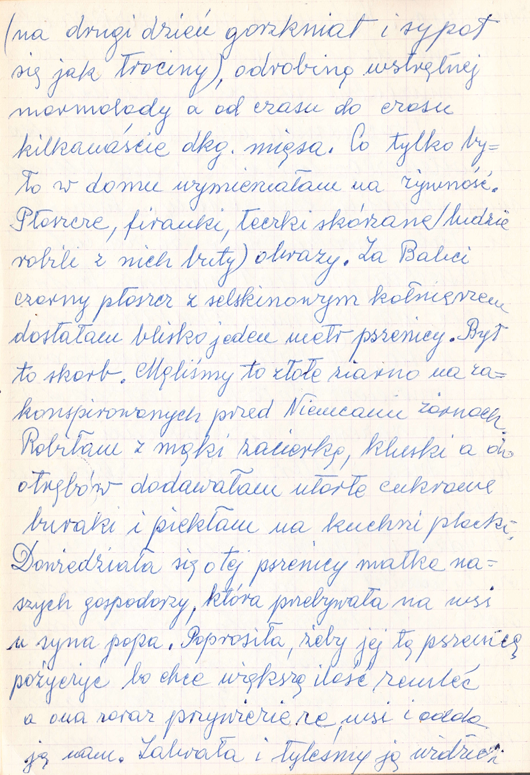 (na drugi dzień gorzkniał i sypał
się jak trociny), odrobinę wstrętnej
marmolady a od czasu do czasu
kilkanaście dkg. mięsa. Co tylko by=
ło w domu wymieniałam na żywność.
Płaszcze, firanki, teczki skórzane/ludzie
robili z nich buty) obrazy. Za Babci
czarny płaszcz z selskinowym kołnierzem
dostałam blisko jeden metr pszenicy. Był
to skarb. Mełliśmy to złote ziarno na za=
konspirowanych przed Niemcami żarnach.
Robiłam z mąki zacierkę, kluski a do
otrębów dodawałam utarte cukrowe
buraki i piekłam na kuchni placki.
Dowiedziała się o tej pszenicy matka na=
szych gospodarzy, która przebywała na wsi
u syna popa. Poprosiła, żeby jej tą pszenicę
pożyczyć bo chce większą ilość zemleć
a ona zaraz przywiezie ze wsi i odda
ją nam. Zabrała i tyleśmy ją widzieli